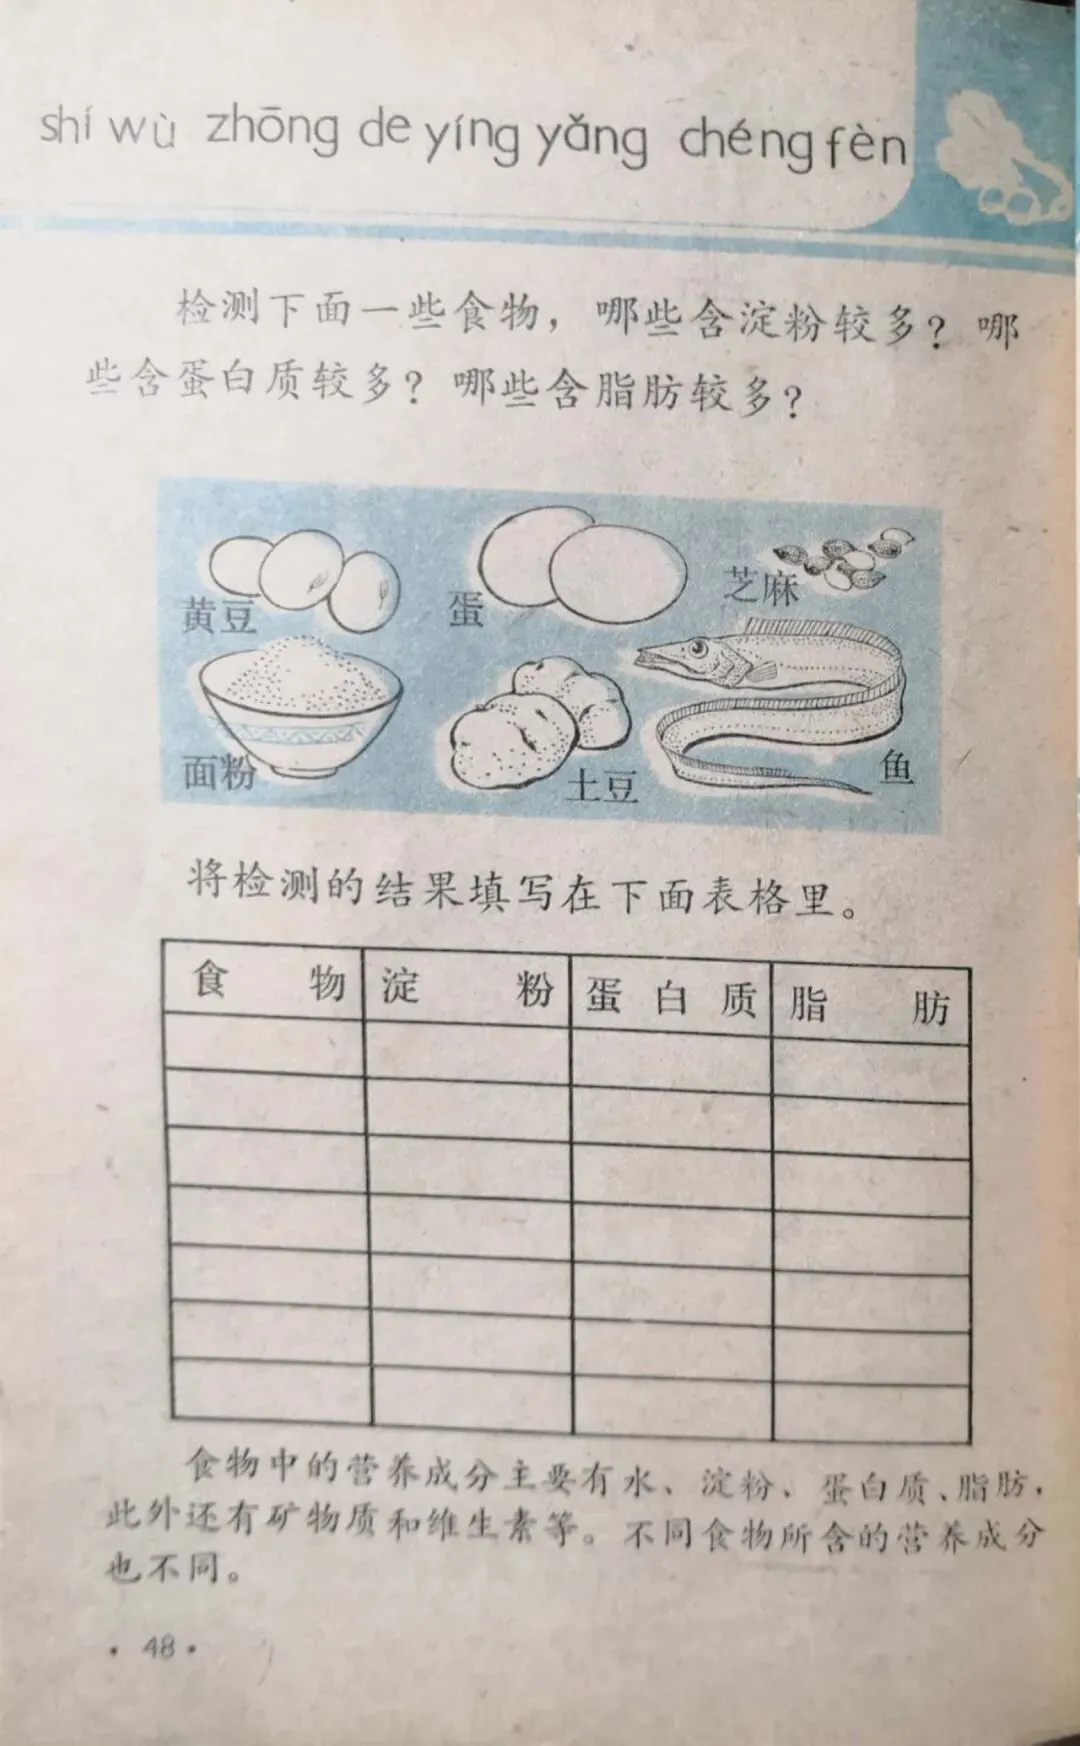 shí wù zhōng de yíng yǎng chéng fèn
检测下面一些食物，哪些含淀粉较多？哪
些含蛋白质较多？哪些含脂肪较多？
黄豆
蛋
芝麻
面粉
土豆
鱼
将检测的结果填写在下面表格里。
食物 淀粉 蛋白质 脂肪
食物中的营养成分主要有水、淀粉、蛋白质、脂肪，
此外还有矿物质和维生素等。不同食物所含的营养成分
也不同。
· 48 ·